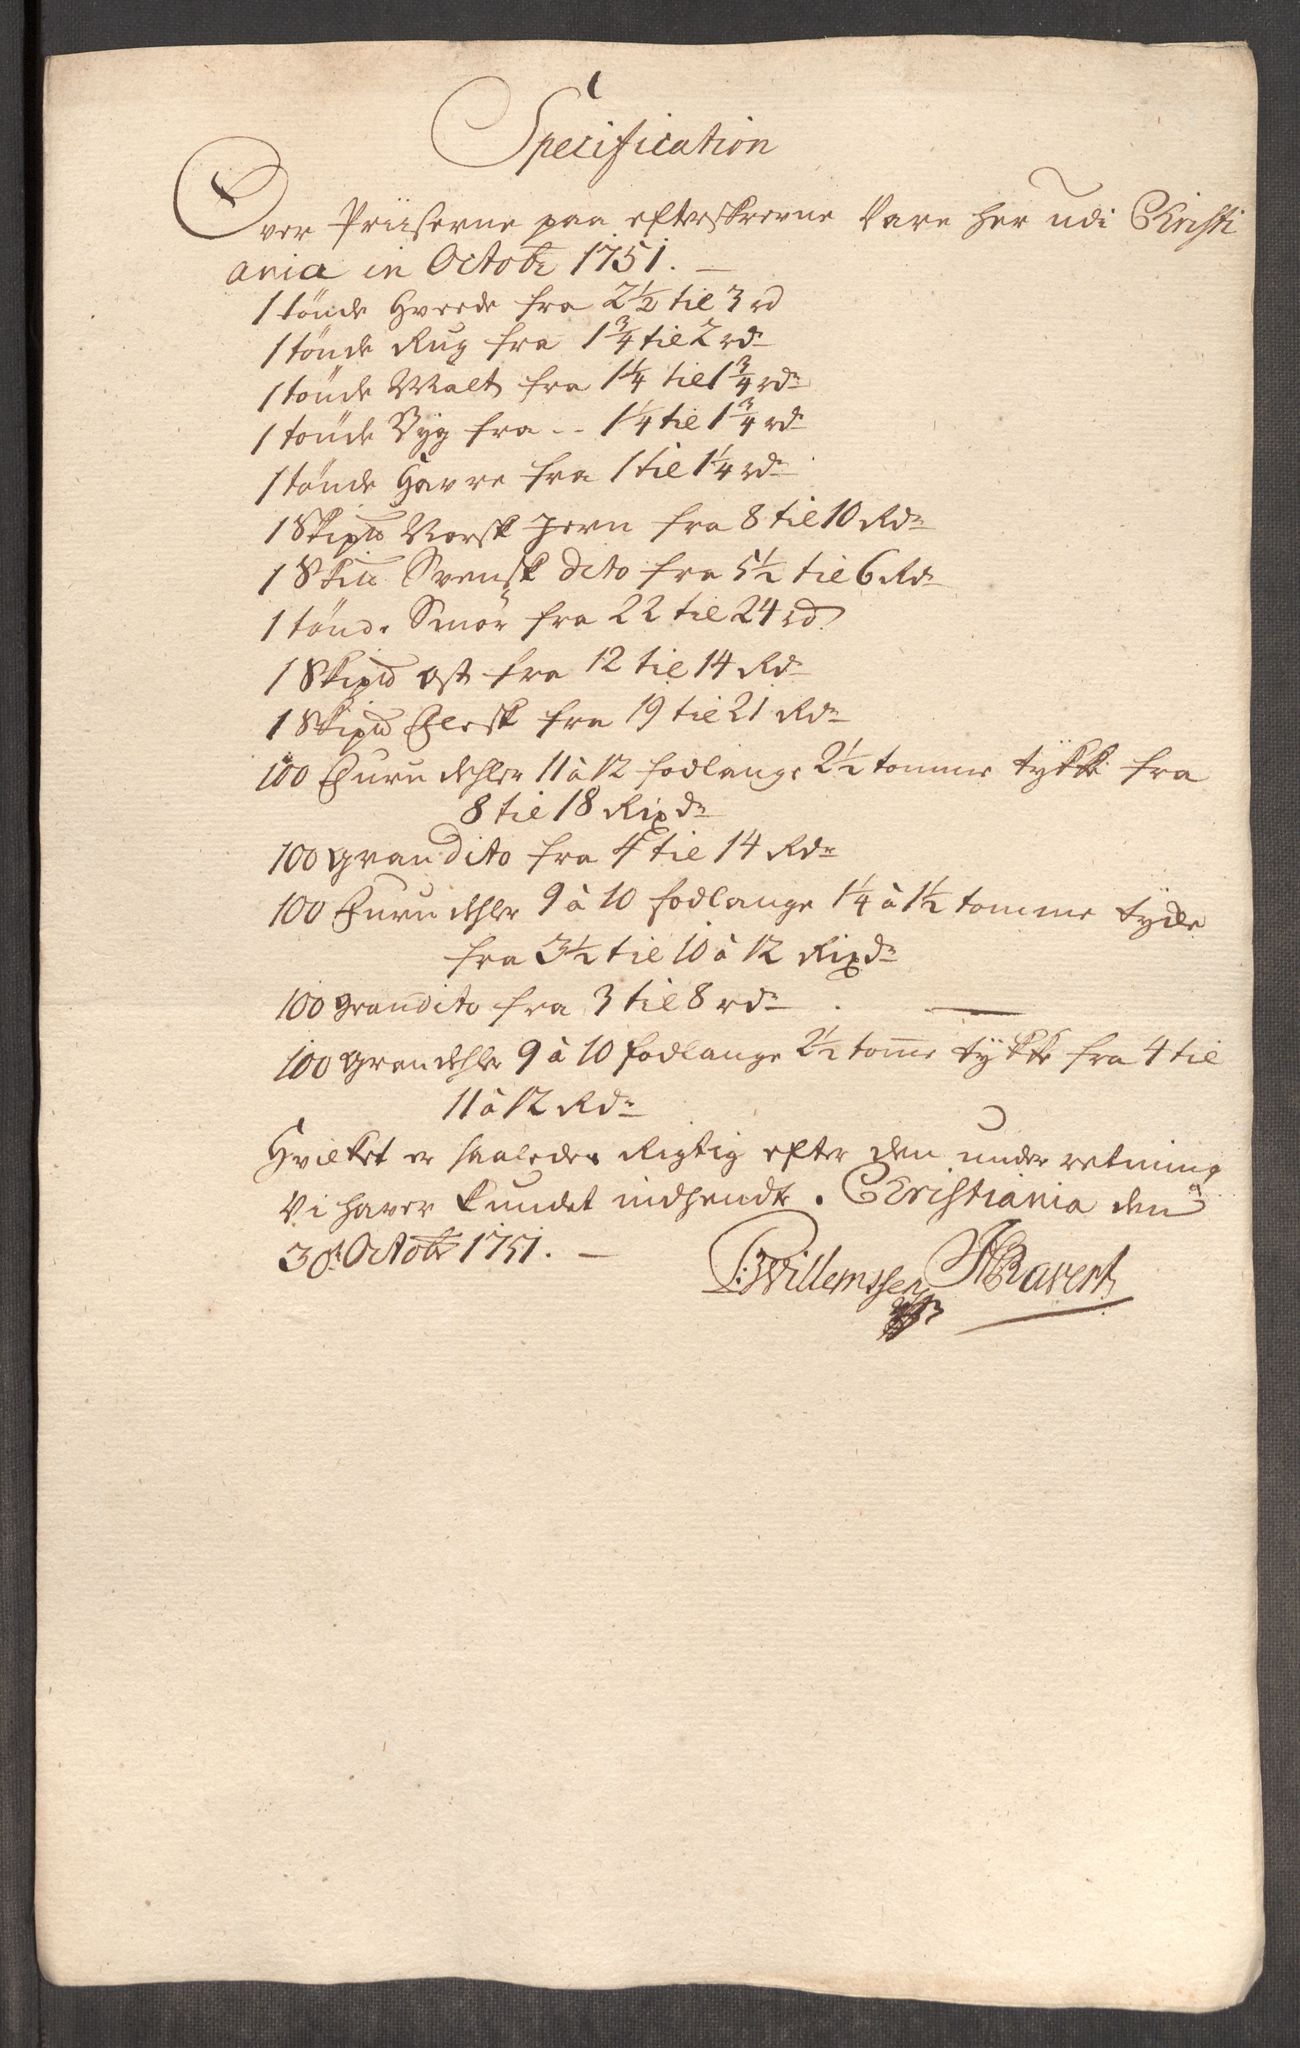 Specification
Over Priiserne paa efterskrevne Vare her udi Christi
ania in Octobr 1751. —
1 tönde Hvede fra 2½ til 3 rd
1 tönde Rug fra 1¾ til 2 rdr
1 tönde Malt fra 1¼ til 1¾ rdr
1 tönde Byg fra -- 1¼ til 1¾ rdr
1 tönde Havre fra 1 til 1¼ rdr
1 Skipd Norsk Jern fra 8 til 10 Rdr
1 Skid Svensk dito fra 5½ til 6 Rdr
1 tönde Smör fra 22 til 24 rd
1 Skipd ost fra 12 til 14 Rdr
1 Skipd Flesk fra 19 til 21 Rdr
100 Furu dehler 11 à 12 fodlange 2½ tomme tÿkke fra
8 til 18 Rixdr
100 gran dito fra 4 til 14 Rdr
100 Furu dehler 9 à 10 fodlange 1¼ à 1½ tomme tycke
fra 3½ til 10 à 12 Rixdr
100 gran dito fra 3 til 8 rdr . —
100 gran dehler 9 à 10 fodlange 2½ tom̄e tÿkke fra 4 til
11 à 12 Rdr
Hvilket er saaledes Rigtig efter den underretning
Vi haver kundet indhendte. Christiania den
30t Octobr 1751. —
P: Willemssen Ravert